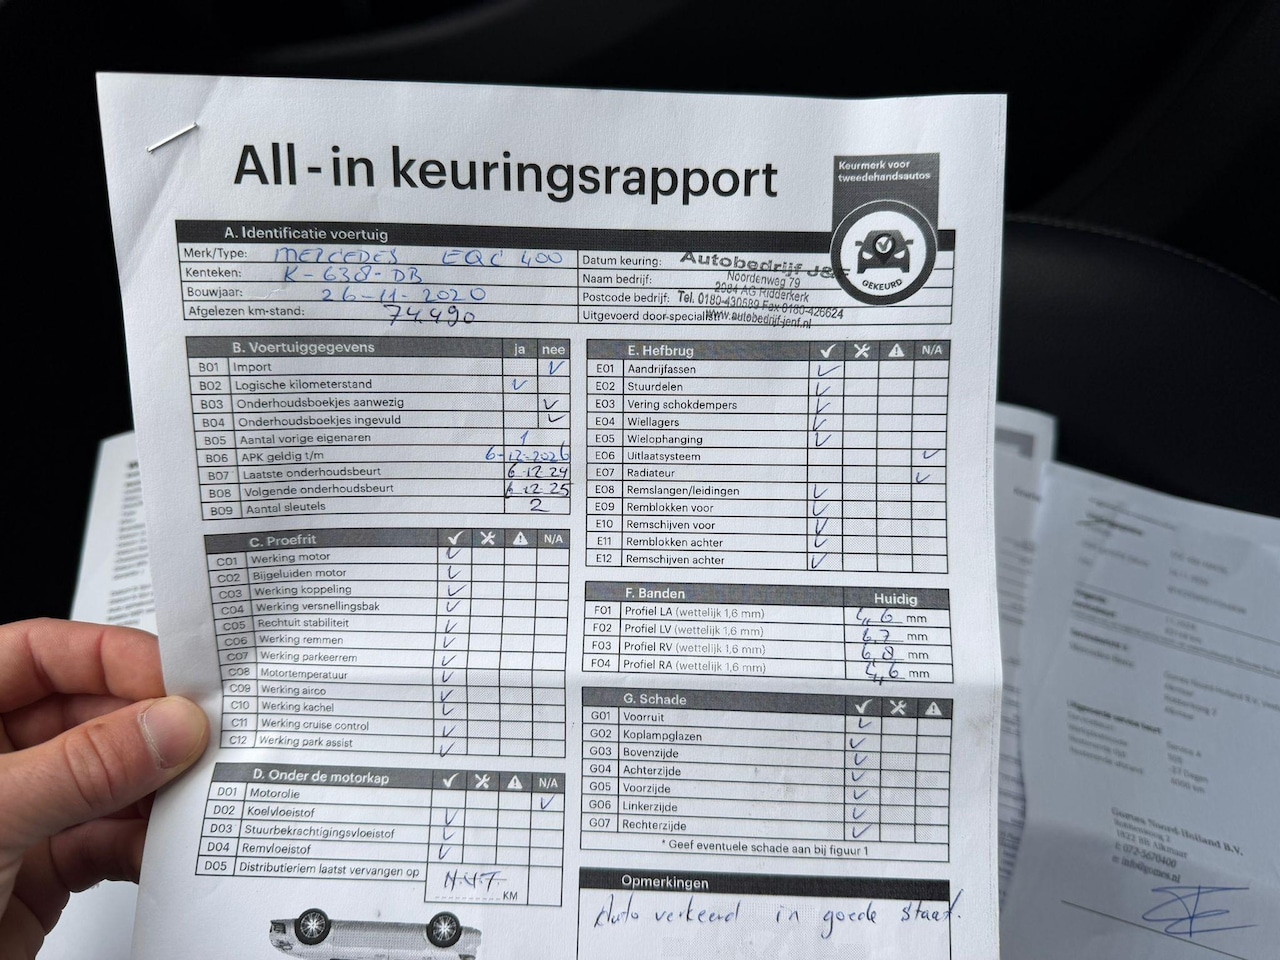 All-in keuringsrapport
Keurmerk voor
tweedehandsautos
GEKEURD
A. Identificatie voertuig
Merk/Type: MERCEDES EQC 400
Kenteken: K-638-DB
Bouwjaar: 26-11-2020
Afgelezen km-stand: 74.490
Datum keuring:
Naam bedrijf:
Postcode bedrijf:
Uitgevoerd door specialist:
Autobedrijf J&F
Noordenweg 79
2984 AG Ridderkerk
Tel. 0180-430589 Fax 0180-426624
www.autobedrijf-jenf.nl
B. Voertuiggegevens ja nee
B01 Import
B02 Logische kilometerstand
B03 Onderhoudsboekjes aanwezig
B04 Onderhoudsboekjes ingevuld
B05 Aantal vorige eigenaren 1
B06 APK geldig t/m 6-12-2026
B07 Laatste onderhoudsbeurt 6-12-24
B08 Volgende onderhoudsbeurt 6-12-25
B09 Aantal sleutels 2
C. Proefrit N/A
C01 Werking motor
C02 Bijgeluiden motor
C03 Werking koppeling
C04 Werking versnellingsbak
C05 Rechtuit stabiliteit
C06 Werking remmen
C07 Werking parkeerrem
C08 Motortemperatuur
C09 Werking airco
C10 Werking kachel
C11 Werking cruise control
C12 Werking park assist
D. Onder de motorkap N/A
D01 Motorolie
D02 Koelvloeistof
D03 Stuurbekrachtigingsvloeistof
D04 Remvloeistof
D05 Distributieriem laatst vervangen op N.V.T. KM
E. Hefbrug N/A
E01 Aandrijfassen
E02 Stuurdelen
E03 Vering schokdempers
E04 Wiellagers
E05 Wielophanging
E06 Uitlaatsysteem
E07 Radiateur
E08 Remslangen/leidingen
E09 Remblokken voor
E10 Remschijven voor
E11 Remblokken achter
E12 Remschijven achter
F. Banden Huidig
F01 Profiel LA (wettelijk 1,6 mm) mm
F02 Profiel LV (wettelijk 1,6 mm) 6.7 mm
F03 Profiel RV (wettelijk 1,6 mm) 6.8 mm
F04 Profiel RA (wettelijk 1,6 mm) mm
G. Schade
G01 Voorruit
G02 Koplampglazen
G03 Bovenzijde
G04 Achterzijde
G05 Voorzijde
G06 Linkerzijde
G07 Rechterzijde
* Geef eventuele schade aan bij figuur 1
Opmerkingen
Auto verkeerd in goede staat.
Gomes Noord-Holland B.V.
1822 BB Alkmaar
t: 072-5670400
e: info@gomes.nl